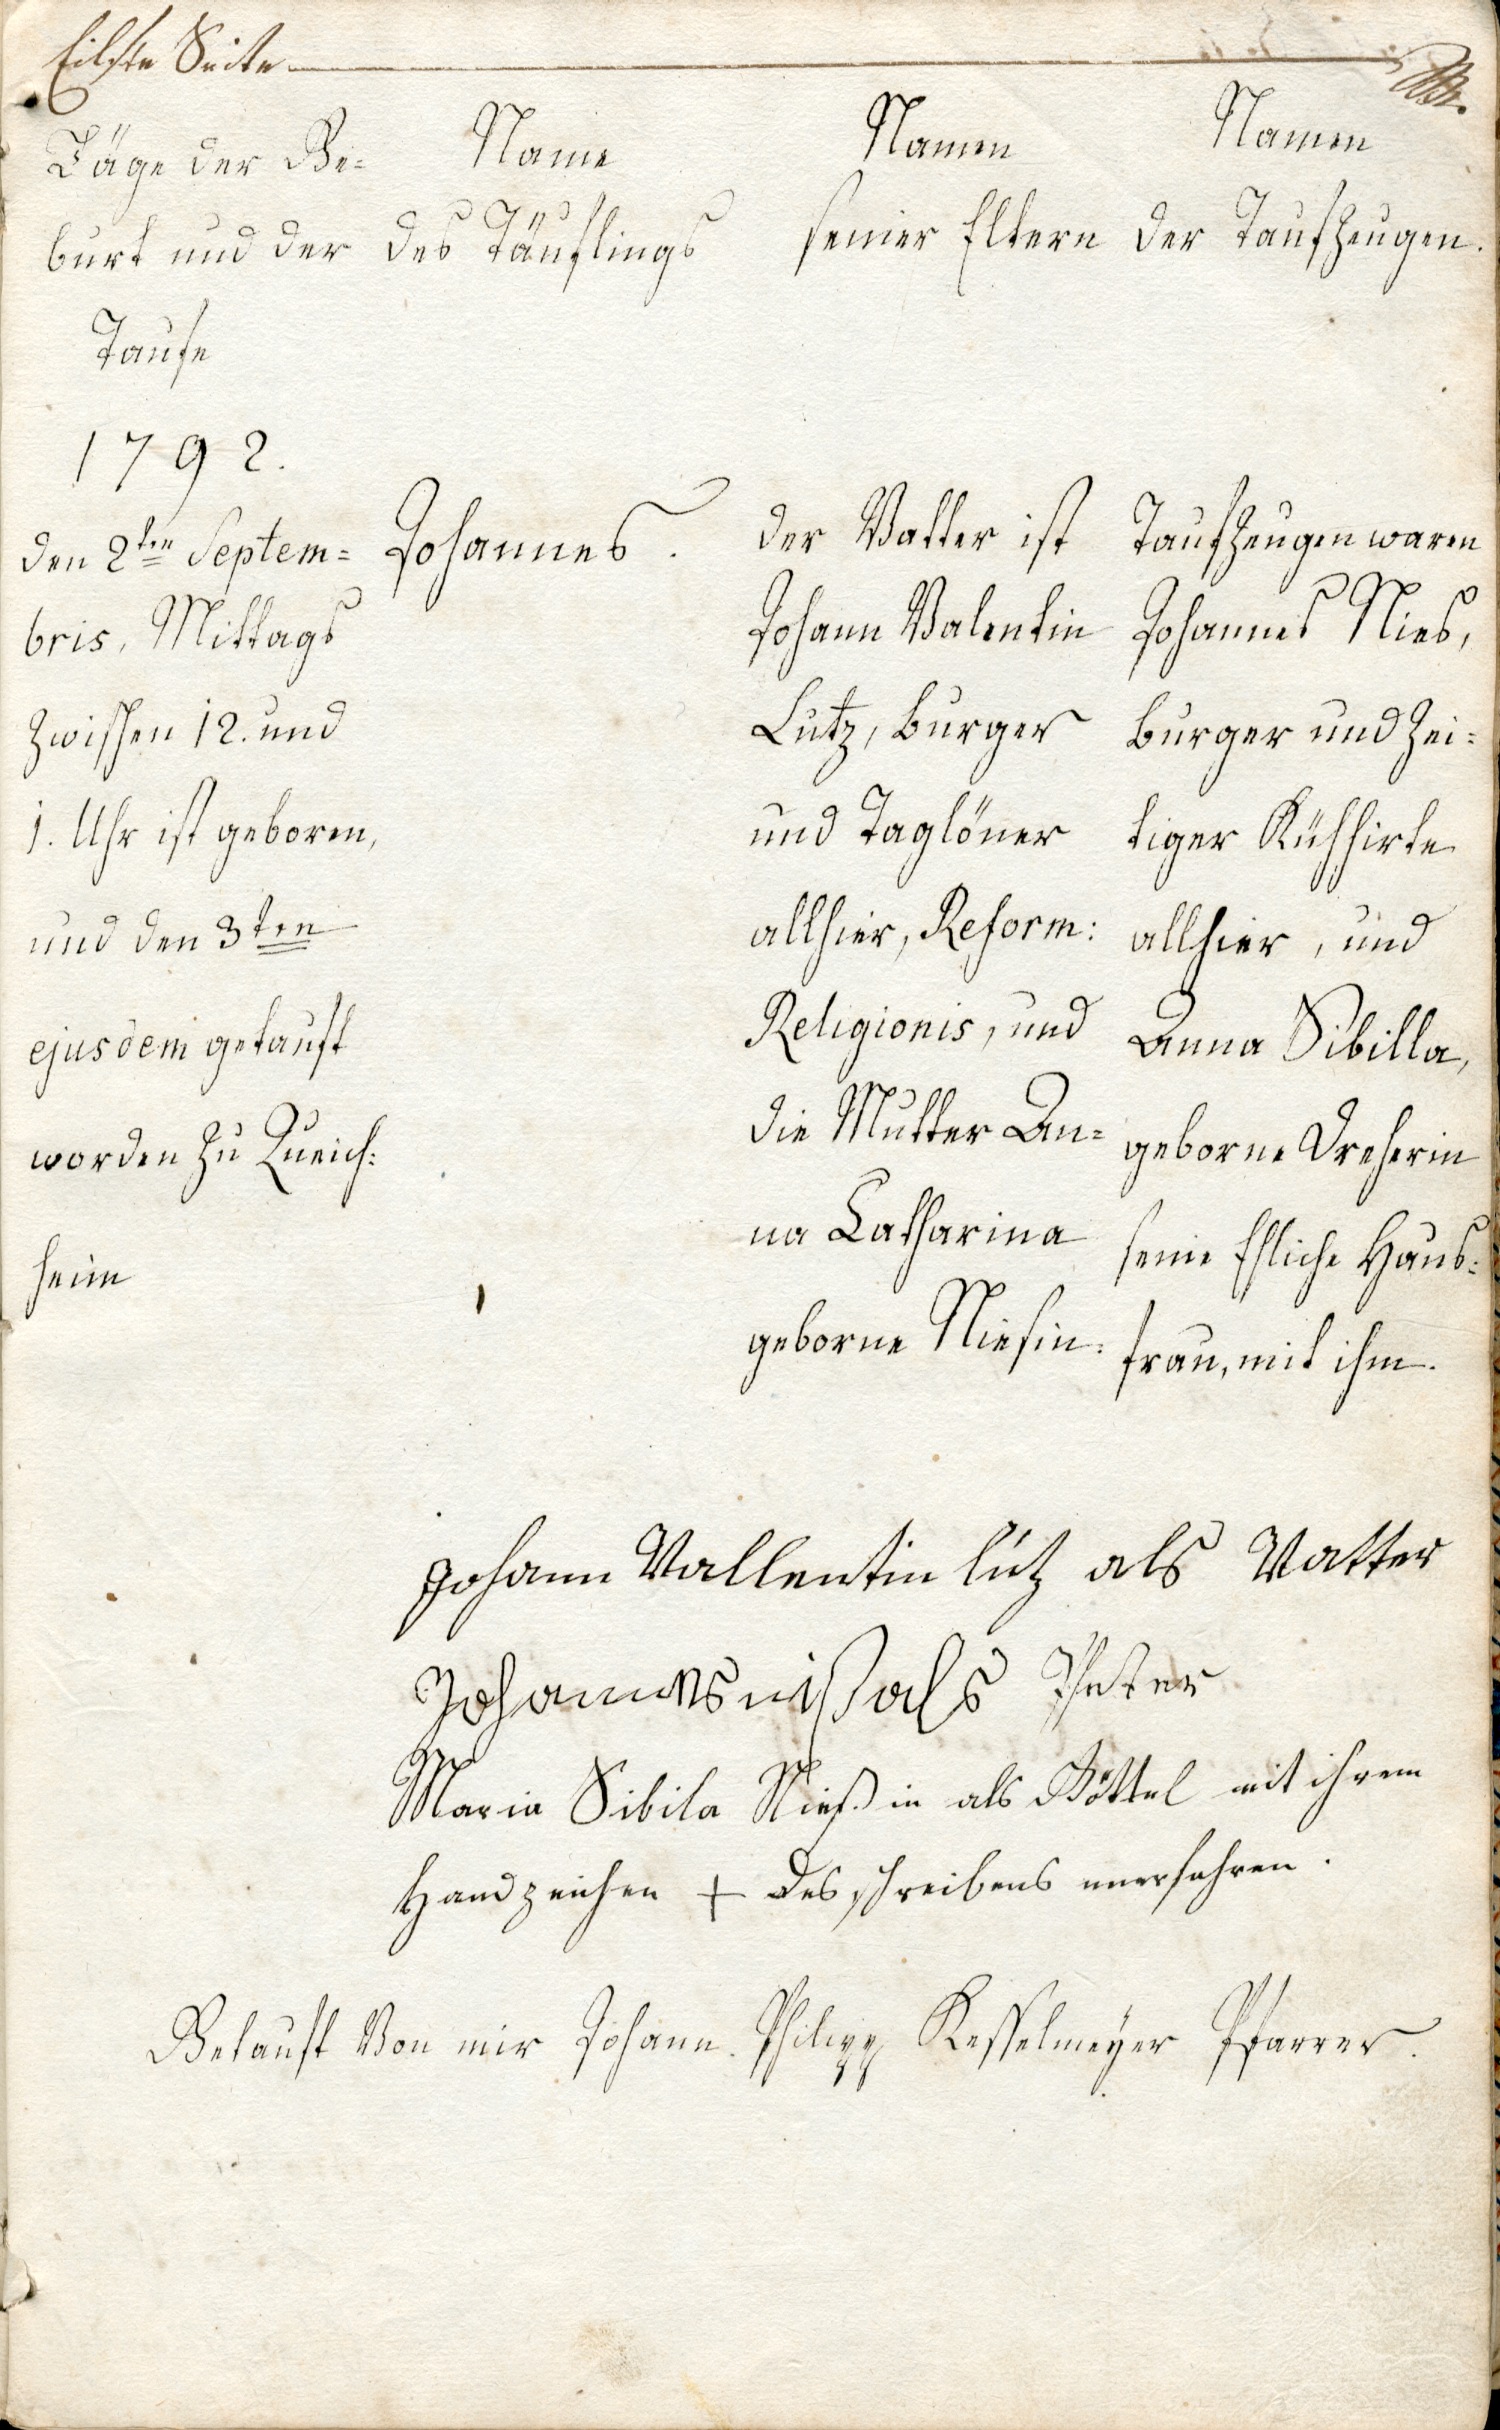 Eilfte Seite
Täge der Ge=
burt und der
Taufe
Name
des Täuflings
Namen
seiner Eltern
Namen
der Taufzeugen.
1792.
den 2ten Septem=
bris, Mittags
zwischen 12. und
1. Uhr ist geboren,
und den 3ten
ejusdem getauft
worden zu Queich=
heim
Johannes.
der Vatter ist
Johann Valentin
Lutz, burger
und Taglöner
allhier, Reform:
Religionis, und
die Mutter An=
na Catharina
geborne Niesin.
Taufzeugen waren
Johannes Nies,
burger und Zei=
tiger Kühhirte
allhier, und
Anna Sibilla,
geborne Dreherin
seine Ehliche Haus=
frau, mit ihm.
Johann Vallentin lutz als Vatter
Johannes niß als Pheter
Maria Sibila Nießin als Göttel mit ihrem
Handzeichen + des schreibens unerfahren.
Getauft Von mir Johann Philipp Kesselmeÿer Pfarrer.